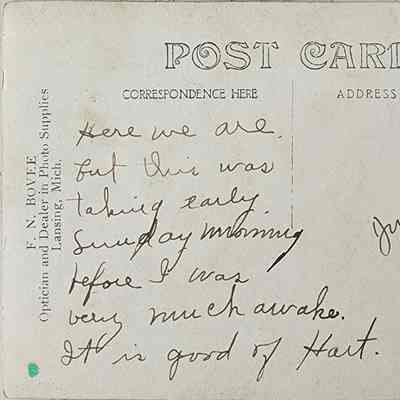 POST CARD
CORRESPONDENCE HERE
ADDRESS
F. N. BOVEE
Optician and Dealer in Photo Supplies
Lansing, Mich.
Here we are.
but this was
taking early
Sunday morning
before I was
very much awake.
It is good of Hart.